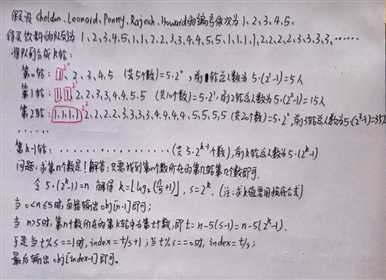 假设 Sheldon、Leonard、Penny、Rajesh、Howard的编号依次为 1、2、3、4、5.
得买饮料的队列为 1、2、3、4、5、1、1、2、2、3、3、4、4、5、5、1、1、1、1、2、2、2、2、3、3、3、3、……
将队列分成k轮:
第0轮: 1、2、3、4、5 (共5个数) = 5·2⁰, 前1轮总人数为 5·(2¹-1) = 5人
第1轮: 1、1、2、2、3、3、4、4、5、5 (共10个数) = 5·2¹, 前2轮总人数为 5·(2²-1) = 15人
第2轮: 1、1、1、1、2、2、2、2、3、3、3、3、4、4、4、4、5、5、5、5 (共20个数) = 5·2², 前3轮总人数为 5·(2³-1) = 35人
……
第k-1轮: ………… (共 5·2ᵏ⁻¹ 个数), 前k轮总人数为 5·(2ᵏ-1)
问题: 求第n个数是? 解答: 只需找到第n个数所在的第几轮第t个数即可.
令 5·(2ᵏ-1) = n 解得 k = ⌊log₂(n/5+1)⌋, s = 2ᵏ.
当 0<n≤5时, 直接输出obj[n-1]即可;
当 n>5时, 第n个数所在的第k轮为第t个数, 即t = n-5(s-1) = n-5(2ᵏ-1).
于是当t%s==1时, index = t/s+1; 当t%s==0时, index = t/s;
最后输出obj[index-1]即可.